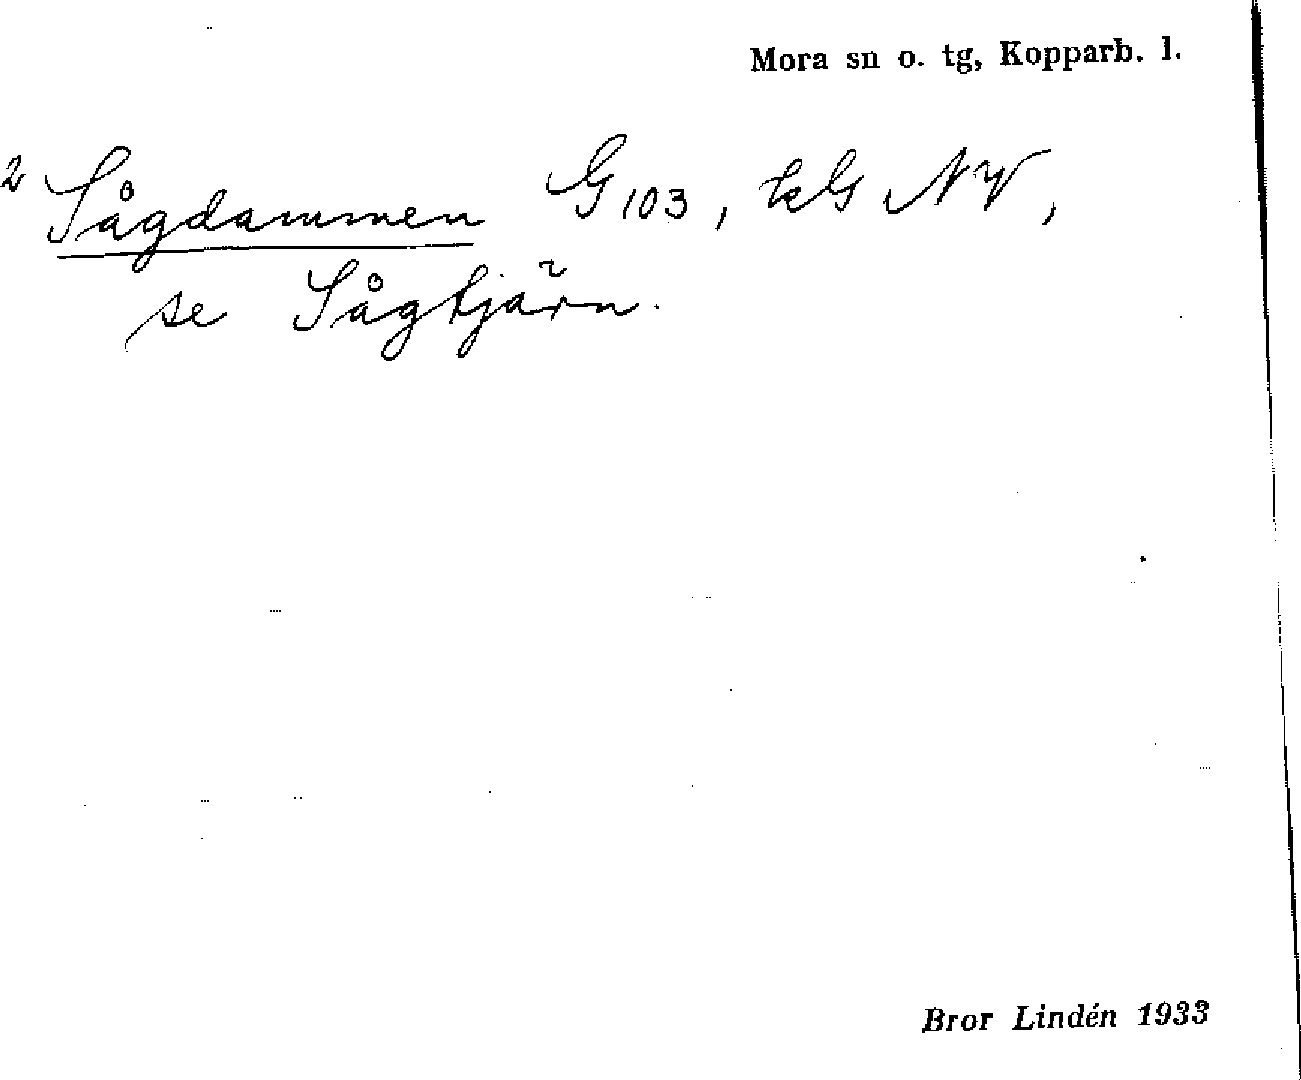 Mora sn o. tg, Kopparb. l.
2 Sågdammen G103, kG NV,
se Sågtjärn.
Bror Lindén 1933